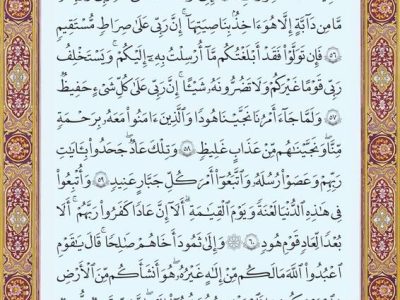 مَّا مِن دَآبَّةٍ إِلَّا هُوَ ءَاخِذُۢ بِنَاصِيَتِهَآۚ إِنَّ رَبِّي عَلَىٰ صِرَٰطٖ مُّسۡتَقِيمٖ
٥٦ فَإِن تَوَلَّوۡاْ فَقَدۡ أَبۡلَغۡتُكُم مَّآ أُرۡسِلۡتُ بِهِۦٓ إِلَيۡكُمۡۚ وَيَسۡتَخۡلِفُ
رَبِّي قَوۡمًا غَيۡرَكُمۡ وَلَا تَضُرُّونَهُۥ شَيۡـًٔاۚ إِنَّ رَبِّي عَلَىٰ كُلِّ شَيۡءٍ حَفِيظٞ
٥٧ وَلَمَّا جَآءَ أَمۡرُنَا نَجَّيۡنَا هُودٗا وَٱلَّذِينَ ءَامَنُواْ مَعَهُۥ بِرَحۡمَةٖ
مِّنَّا وَنَجَّيۡنَٰهُم مِّنۡ عَذَابٍ غَلِيظٖ ٥٨ وَتِلۡكَ عَادٞۖ جَحَدُواْ بِـَٔايَٰتِ
رَبِّهِمۡ وَعَصَوۡاْ رُسُلَهُۥ وَٱتَّبَعُوٓاْ أَمۡرَ كُلِّ جَبَّارٍ عَنِيدٖ ٥٩ وَأُتۡبِعُواْ
فِي هَٰذِهِ ٱلدُّنۡيَا لَعۡنَةٗ وَيَوۡمَ ٱلۡقِيَٰمَةِۗ أَلَآ إِنَّ عَادٗا كَفَرُواْ رَبَّهُمۡۗ أَلَا
بُعۡدٗا لِّعَادٖ قَوۡمِ هُودٖ ٦٠ ۞ وَإِلَىٰ ثَمُودَ أَخَاهُمۡ صَٰلِحٗاۚ قَالَ يَٰقَوۡمِ
ٱعۡبُدُواْ ٱللَّهَ مَا لَكُم مِّنۡ إِلَٰهٍ غَيۡرُهُۥۖ هُوَ أَنشَأَكُم مِّنَ ٱلۡأَرۡضِ